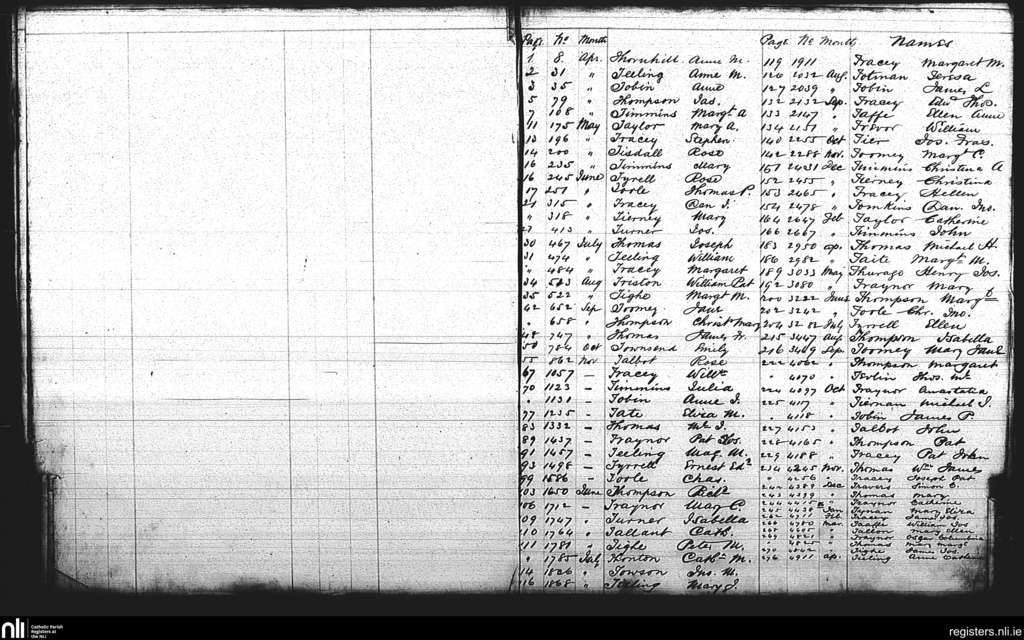 Page No Month
1 8 Apr. Thornhill Anne M.
2 31 " Teeling Anne M.
3 35 " Tobin Anne
5 79 " Thompson Jas.
7 108 " Timmins Margt A
11 175 May Taylor Mary A.
13 196 " Tracey Stephen
14 200 " Tisdall Rose
16 235 " Timmins Mary
16 245 June Tyrell Rose
17 251 " Toole Thomas P.
21 315 " Tracey Dan J.
" 318 " Tierney Mary
413 " Turner Jos.
30 467 July Thomas Joseph
31 474 " Teeling William
" 484 " Tracey Margaret
34 Aug Triston William Pat
35 522 " Tighe Margt M.
42 652 Sep Toomey Jane
" 658 " Thompson Christ Mary
48 747 " Thomas James Fr.
50 784 Oct Townsend Emily
55 862 Nov Talbot Rose
67 1057 — Tracey Willm
70 1123 — Timmins Julia
" 1131 — Tobin Anne J.
77 1235 — Tate Eliza M.
83 1332 — Thomas Ml J.
89 1437 — Traynor Pat Jos.
91 1457 — Teeling Mag. M.
93 1498 — Tyrrell Ernest Edd
99 1586 — Toole Chas.
103 1650 June Thompson Richd
106 1712 — Traynor Mary C.
109 1747 " Turner Isabella
110 1764 " Tallant Cath.
111 1781 " Tighe Peter M.
1785 July Cathn M.
14 1826 " Towson Jno. M.
16 1868 " Teeling Mary J.
Page No Month Names
119 1911 Tracey Margaret M.
126 2032 Aug. Totman Teresa
127 2039 " Tobin James L
132 2132 Sep. Tracey Edwd Thos.
133 2147 " Taffe Ellen Anne
134 2151 " Trevor William
140 2255 Oct Tier Jos. Fras.
142 2288 Nov. Toomey Margt C.
151 2431 Dec Timmins Christina A
152 2455 " Tierney Christina
153 2465 " Tracey Hellen
154 2478 " Tomkins Dan. Jno.
164 2647 Feb Taylor Catherine
166 2667 " Timmins John
183 2950 Ap. Thomas Michael H.
186 2982 " Taite Margt M.
189 3033 May Thurago Henry Jos.
192 3080 " Traynor Mary
200 3222 June Thompson Margt
202 3242 " Toole Chr. Jno.
204 July Tyrrell Ellen
215 3447 Aug Thompson Isabella
216 3469 Sep. Toomey Mary Jane
222 4062 " Thompson Margaret
" 4070 " Thos. Mc
224 4097 Oct Traynor Anastatia
225 4107 " Tiernan Michael J.
" 4118 " Tobin James P.
227 4153 " Talbot John
228 4165 " Thompson Pat
229 4188 " Tracey Pat John
234 4245 Nov. Thomas Wm James
" 4256 " Tracey Joseph Pat
242 4389 Dec Travers Simon C.
243 4399 " Thomas Mary
244 4415 " Traynor Catherine
245 4438 Jan Tynan Mary Eliza
262 4711 Feb Tracey James Jos.
266 4780 Mar Taaffe William Jos
" Tallon Mary Ellen
269 4821 " Traynor Oscar Columba
" Thomas Mary Margt
" Tighe James Jos.
276 4911 Ap. Teeling Anne Catherine
nli
Catholic Parish
Registers at
the NLI
registers.nli.ie